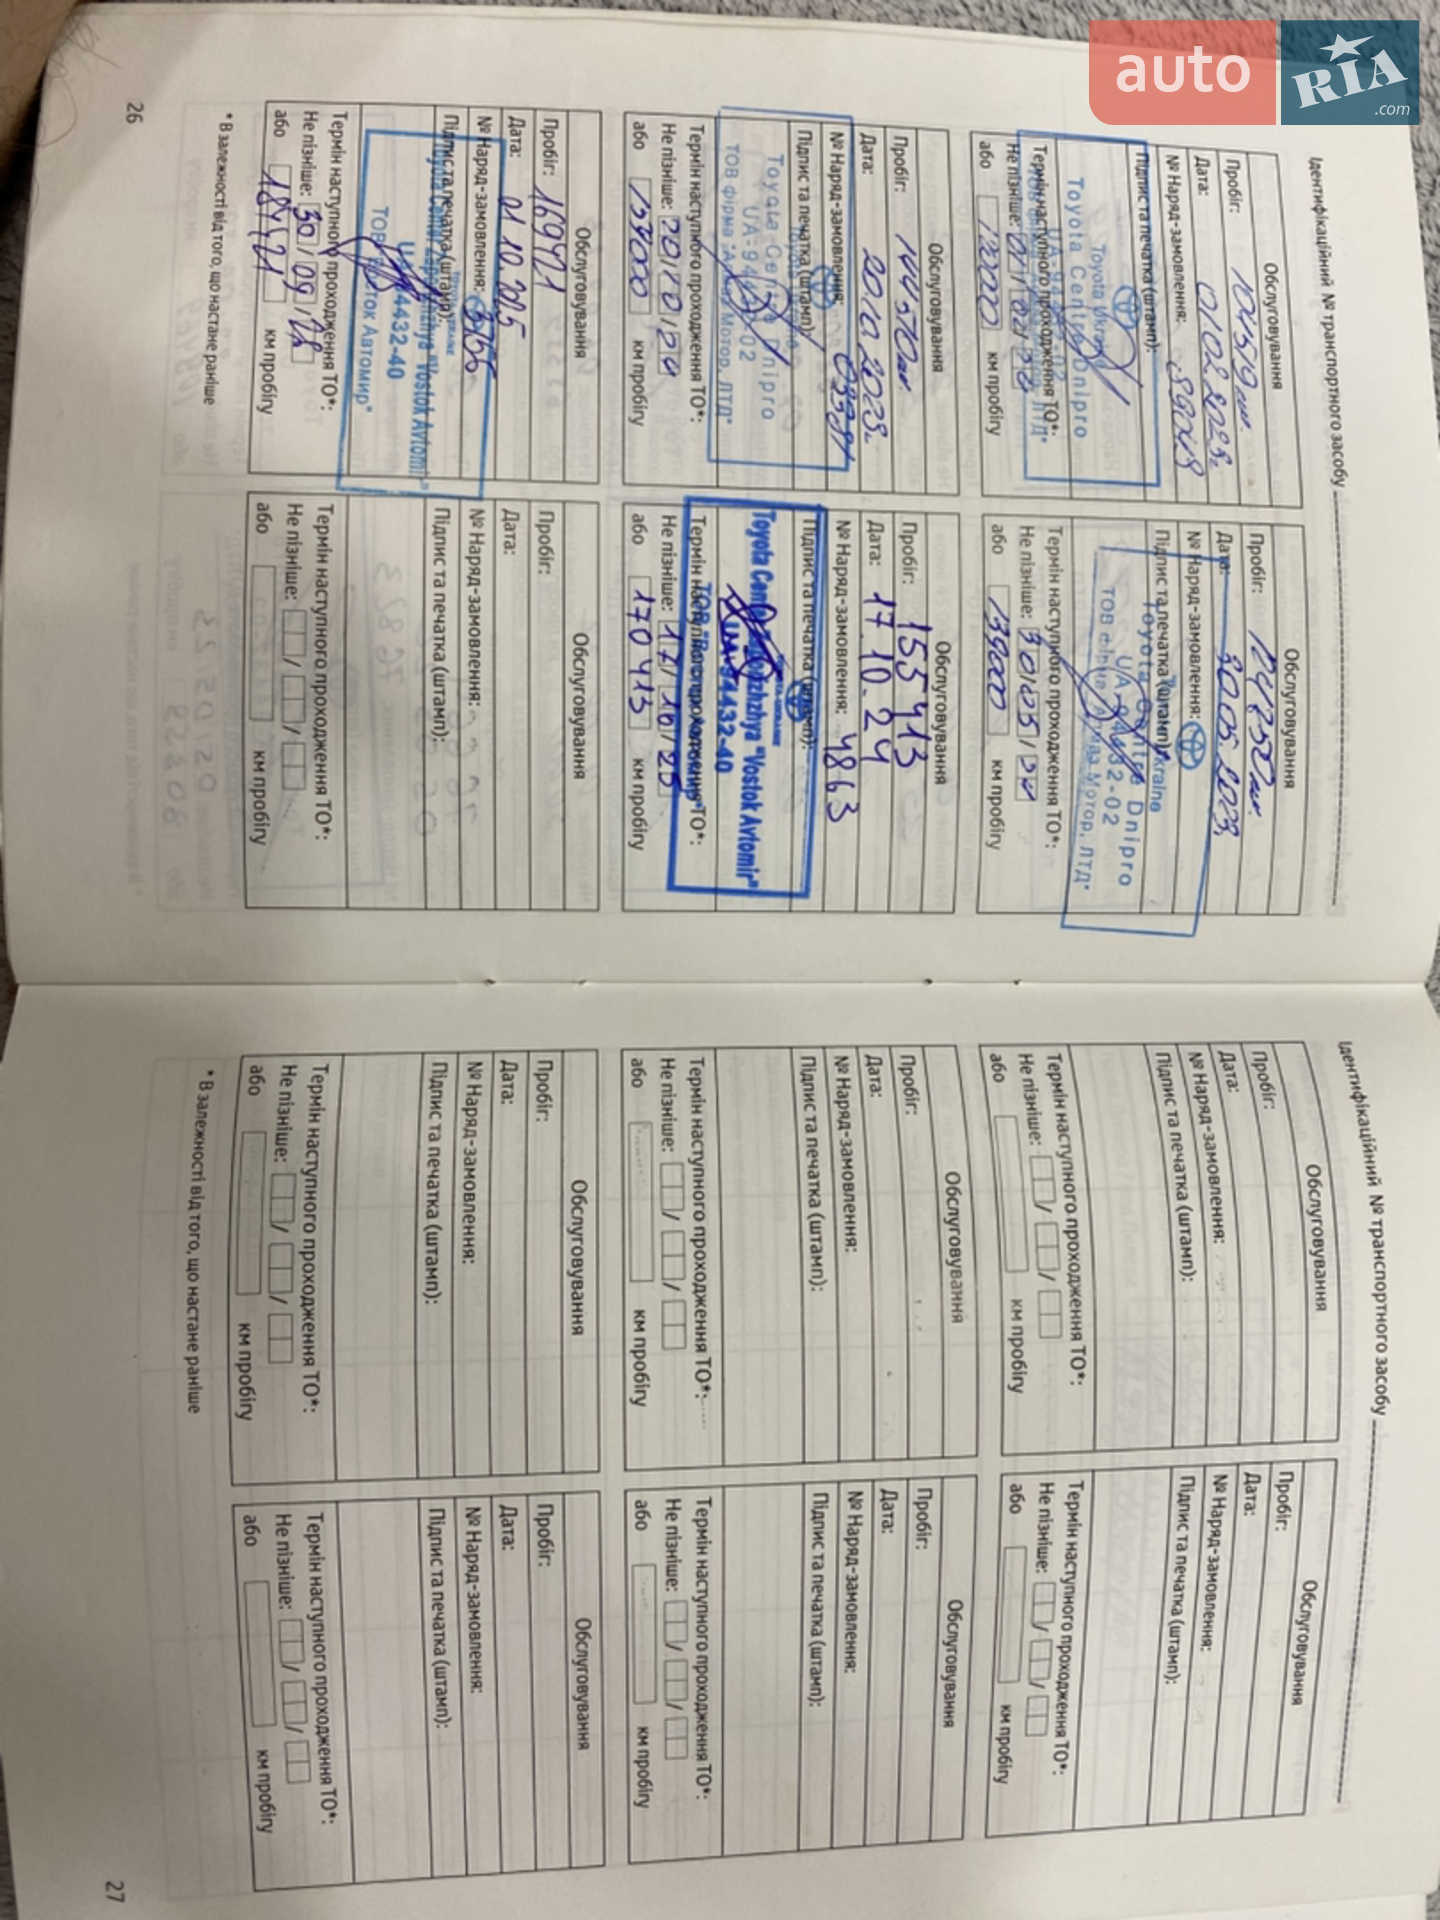 auto
RIA
.com
Ідентифікаційний № транспортного засобу
Обслуговування
Пробіг: 104579 км.
Дата: 01.02.2023.
№ Наряд-замовлення:
Підпис та печатка (штамп):
Toyota Ukraine
Toyota Centre Dnipro
UA-94432-02
Термін наступного проходження ТО*:
Не пізніше:
або км пробігу
Обслуговування
Пробіг:
Дата: 30.05.2023.
№ Наряд-замовлення:
Підпис та печатка (штамп):
Toyota Ukraine
Toyota Centre Dnipro
UA-94432-02
ТОВ фірма "Алмаз Мотор, ЛТД"
Термін наступного проходження ТО*:
Не пізніше: 30/05/24
або 139000 км пробігу
Обслуговування
Пробіг: 144570 км
Дата: 20.10.2023.
№ Наряд-замовлення:
Підпис та печатка (штамп):
Toyota Ukraine
Toyota Centre Dnipro
UA-94432-02
ТОВ фірма "Алмаз Мотор, ЛТД"
Термін наступного проходження ТО*:
Не пізніше: 20/10/24
або км пробігу
Обслуговування
Пробіг: 155413
Дата: 17.10.24
№ Наряд-замовлення: 4863
Підпис та печатка (штамп):
Toyota Center Zaporizhzhya "Vostok Avtomir"
UA-94432-40
Термін наступного проходження ТО*:
Не пізніше: 17/10/25
або 170413 км пробігу
Обслуговування
Пробіг: 169421
Дата: 01.10.2025
№ Наряд-замовлення:
Підпис та печатка (штамп):
Toyota Center Zaporizhzhya "Vostok Avtomir"
UA-94432-40
ТОВ "Восток Автомир"
Термін наступного проходження ТО*:
Не пізніше: 30/09/26
або 184421 км пробігу
Обслуговування
Пробіг:
Дата:
№ Наряд-замовлення:
Підпис та печатка (штамп):
Термін наступного проходження ТО*:
Не пізніше:
або км пробігу
* В залежності від того, що настане раніше
26
Ідентифікаційний № транспортного засобу
Обслуговування
Пробіг:
Дата:
№ Наряд-замовлення:
Підпис та печатка (штамп):
Термін наступного проходження ТО*:
Не пізніше:
або км пробігу
Обслуговування
Пробіг:
Дата:
№ Наряд-замовлення:
Підпис та печатка (штамп):
Термін наступного проходження ТО*:
Не пізніше:
або км пробігу
Обслуговування
Пробіг:
Дата:
№ Наряд-замовлення:
Підпис та печатка (штамп):
Термін наступного проходження ТО*:
Не пізніше:
або км пробігу
Обслуговування
Пробіг:
Дата:
№ Наряд-замовлення:
Підпис та печатка (штамп):
Термін наступного проходження ТО*:
Не пізніше:
або км пробігу
Обслуговування
Пробіг:
Дата:
№ Наряд-замовлення:
Підпис та печатка (штамп):
Термін наступного проходження ТО*:
Не пізніше:
або км пробігу
Обслуговування
Пробіг:
Дата:
№ Наряд-замовлення:
Підпис та печатка (штамп):
Термін наступного проходження ТО*:
Не пізніше:
або км пробігу
* В залежності від того, що настане раніше
27